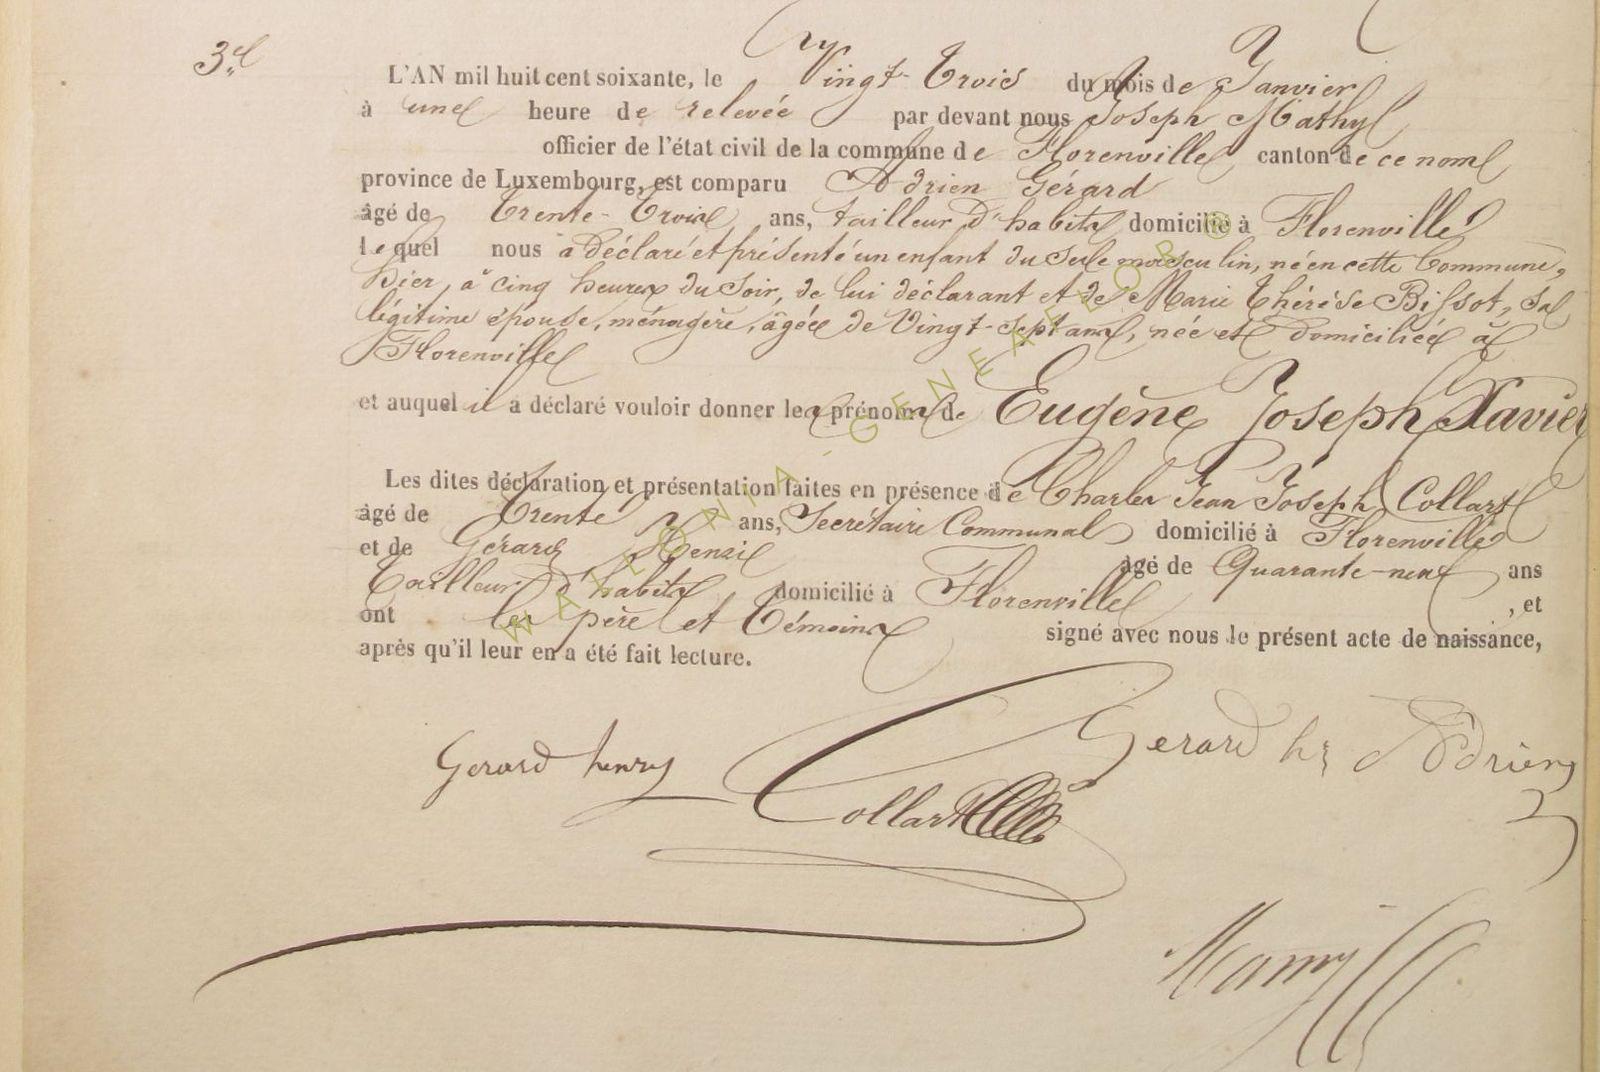 3.e
L'AN mil huit cent soixante, le Vingt-Trois du mois de Janvier
à une heure de relevée par devant nous Joseph Mathy
officier de l'état civil de la commune de Florenville canton de ce nom
province de Luxembourg, est comparu Adrien Gérard
âgé de Trente-Trois ans, tailleur d'habits domicilié à Florenville
lequel nous a déclaré et présenté un enfant du sexe masculin, né en cette Commune,
hier, à cinq heures du soir, de lui déclarant et de Marie Thérèse Bissot, sa
légitime épouse, ménagère, âgée de Vingt-sept ans, née et domiciliée à
Florenville
et auquel il a déclaré vouloir donner les prénoms de Eugène Joseph Xavier
Les dites déclaration et présentation faites en présence de Charles Jean Joseph Collart
âgé de Trente ans, Secrétaire Communal domicilié à Florenville
et de Gérard Henri âgé de Quarante-neuf ans
Tailleur d'habits domicilié à Florenville , et
ont les père et Témoins signé avec nous le présent acte de naissance,
après qu'il leur en a été fait lecture.
Gerard henry
Collart
Gerard Adrien
WALLONIA-GENEAFLOR®